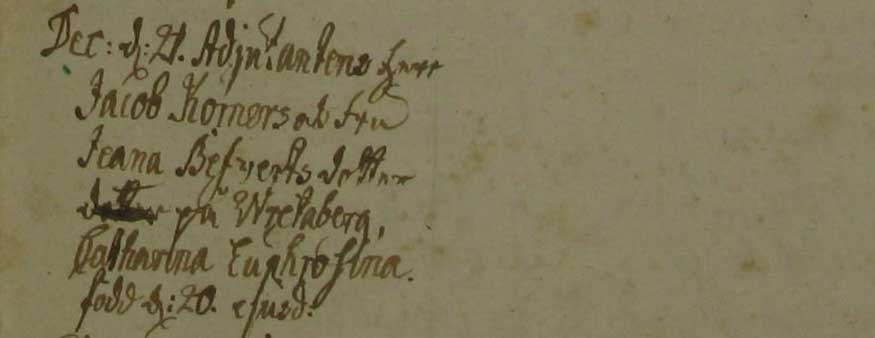 Dec: d: 21. Adjutantens Herr
Jacob Körners ock fru
Jeana Befverts dotter
på Wretaberg,
Catharina Euphrosina.
född d: 20. ejusd: